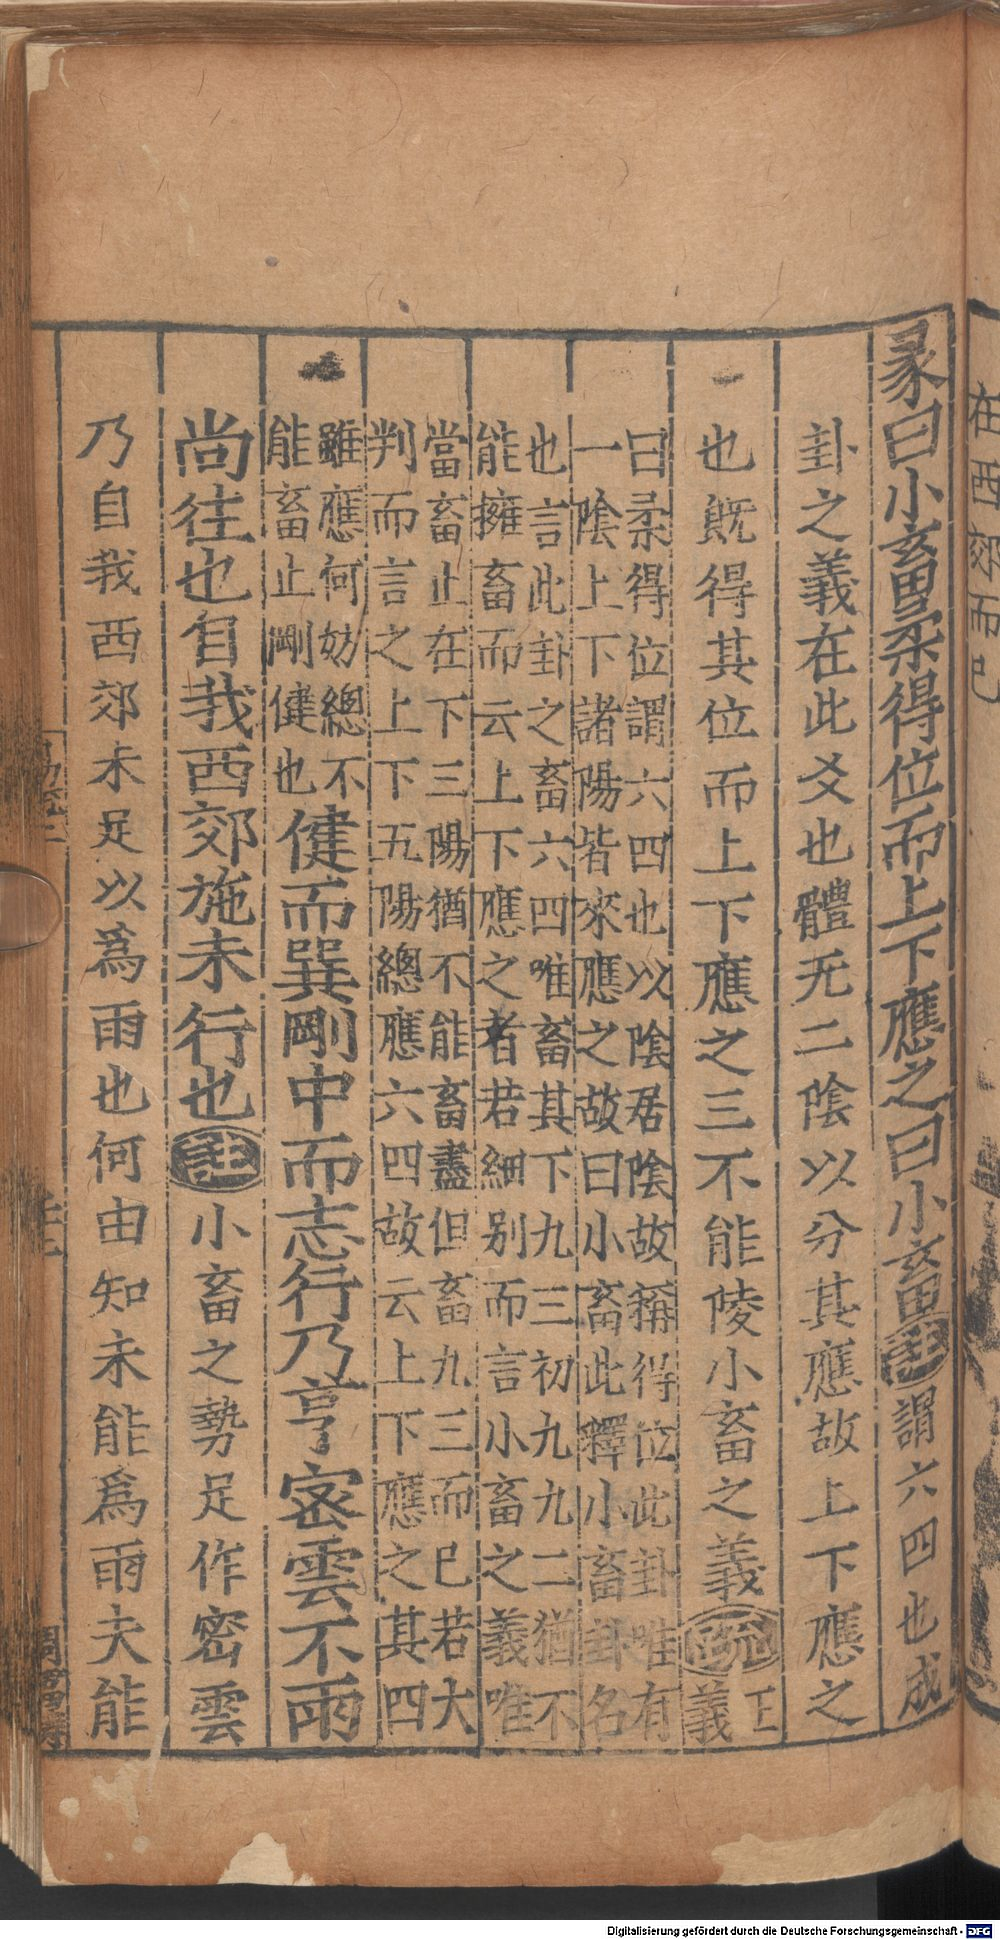 在西郊而已
彖曰小畜柔得位而上下應之曰小畜註謂六四也成
卦之義在此爻也體无二陰以分其應故上下應之
也既得其位而上下應之三不能陵小畜之義疏正
義
曰柔得位謂六四也以陰居陰故稱得位此卦唯有
一陰上下諸陽皆來應之故曰小畜此釋小畜卦名
也言此卦之畜六四唯畜其下九三初九九二猶不
能擁畜而云上下應之者若細別而言小畜之義唯
當畜止在下三陽猶不能畜盡但畜九三而已若大
判而言之上下五陽總應六四故云上下應之其四
雖應何妨總不
能畜止剛健也
健而巽剛中而志行乃亨密雲不雨
尚往也自我西郊施未行也註小畜之勢足作密雲
乃自我西郊未足以爲雨也何由知未能爲雨夫能
Digitalisierung gefördert durch die Deutsche Forschungsgemeinschaft - DFG